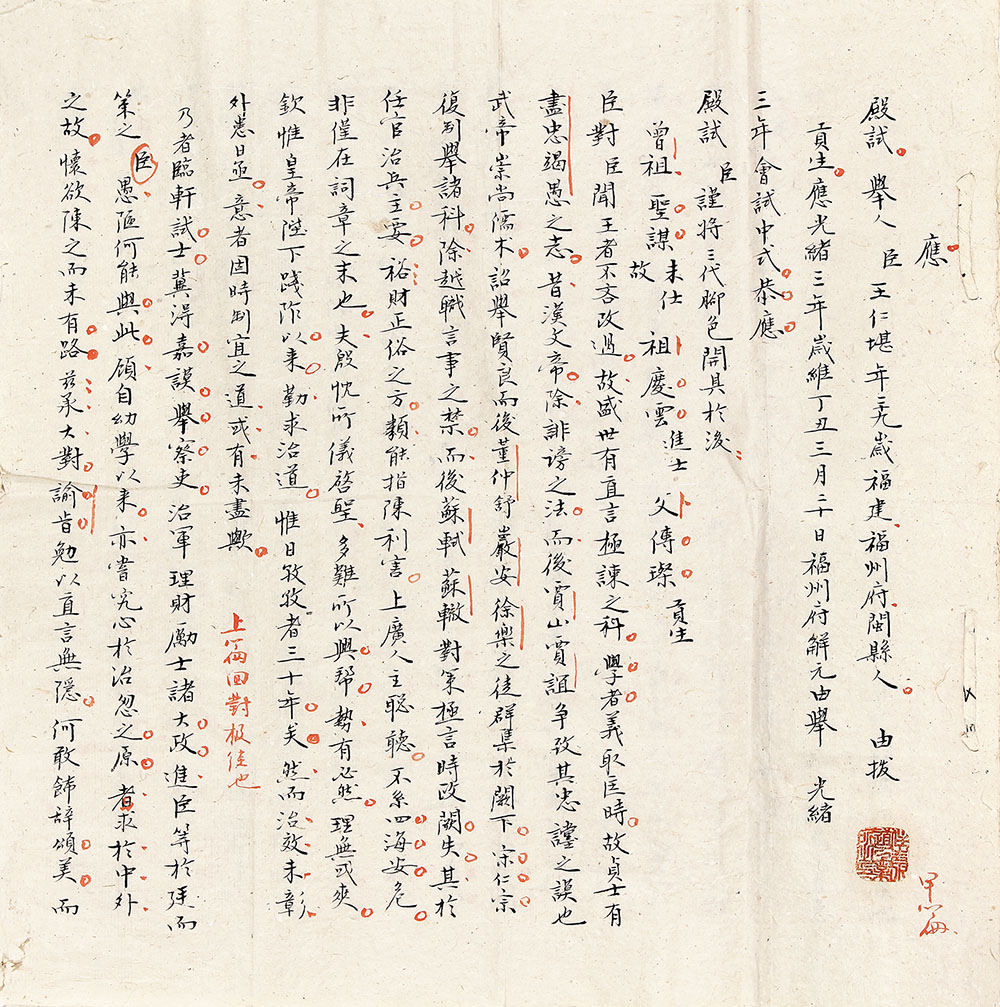 應
殿試舉人臣王仁堪年三九歲福建福州府閩縣人由拔
貢生應光緒三年歲維丁丑三月二十日福州府解元由舉光緒
三年會試中式恭應
殿試臣謹將三代腳色開具於後
曾祖聖謀未仕故祖慶雲進士父傳璨貢生
臣對臣聞王者不吝改過故盛世有直言極諫之科學者義取匡時故貞士有
盡忠竭愚之志昔漢文帝除誹謗之法而後賈山賈誼爭攷其忠讜之謨也
武帝崇尚儒术詔舉賢良而後董仲舒嚴安徐樂之徒群集於闕下宗仁宗
復制舉諸科除越職言事之禁而後蘇軾蘇轍對策極言時政闕失其於
任官治兵主要裕財正俗之方類能指陳利害上廣人主聰聽不系四海安危
非僅在詞章之末也夫殷忱所儀啓聖多難所以興幫勢有必然理無或爽
欽惟皇帝陛下踐阼以來勤求治道惟日孜孜者三十年矣然而治效未彰
外患日亟意者因時制宜之道或有未盡歟
上篇回對极佳也
乃者臨軒試士冀得嘉謨舉察吏治軍理財勵士諸大政進臣等於廷而
策之臣愚陋何能與此顧自幼學以来亦嘗究心於治忽之原者求於中外
之故懷欲陳之而未有路茲承大對諭旨勉以直言無隱何敢飾辭頌美而
甲篇